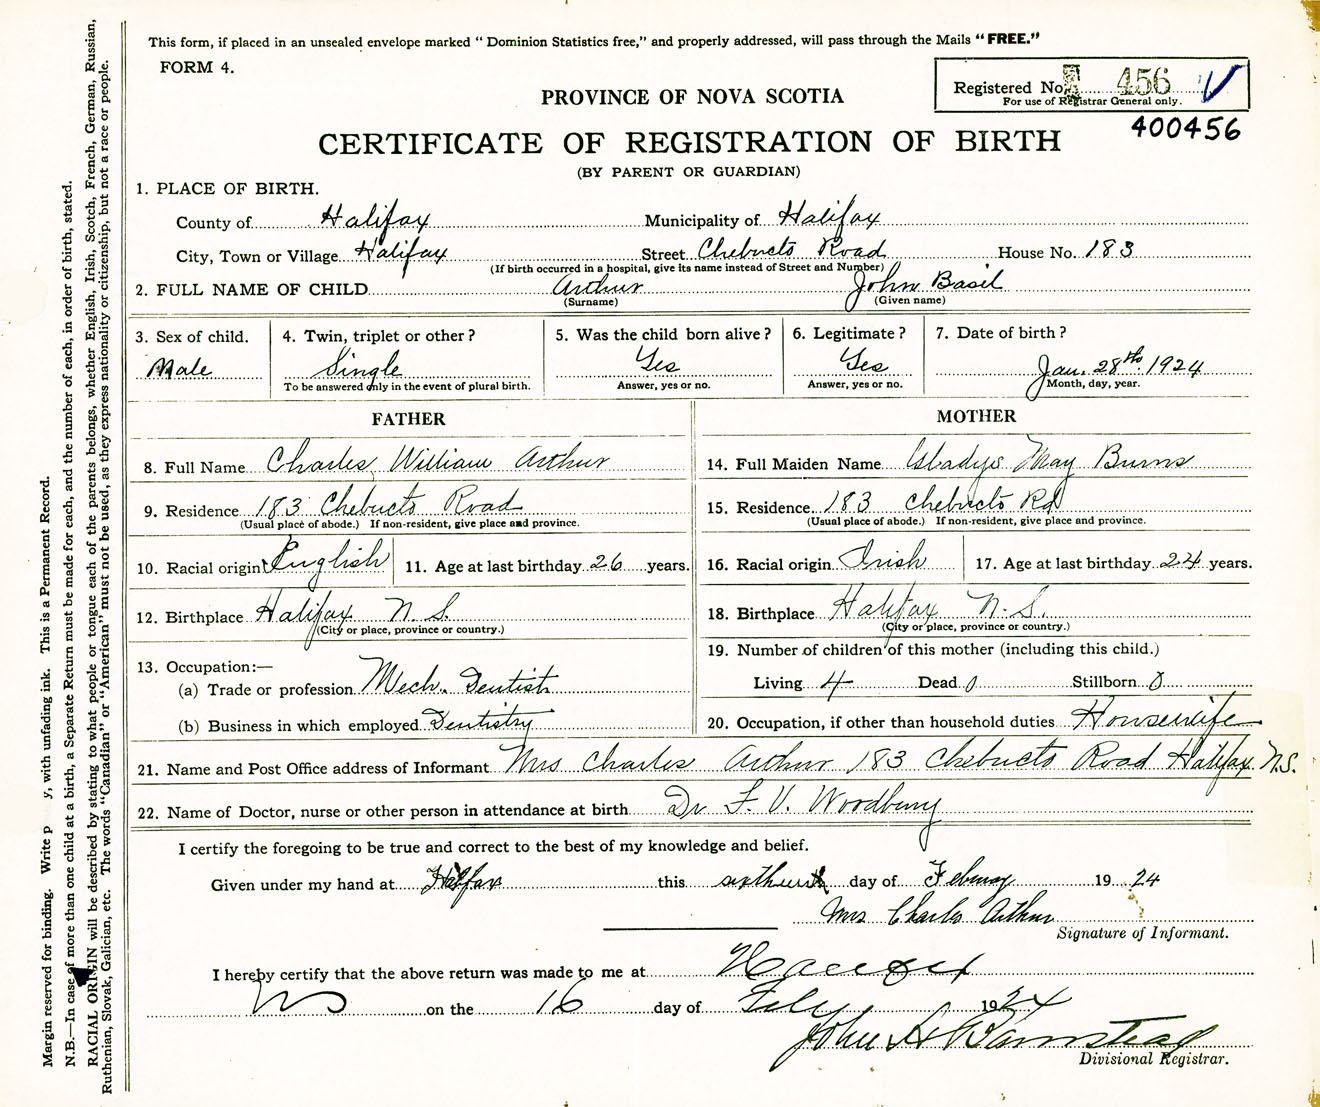 This form, if placed in an unsealed envelope marked "Dominion Statistics free," and properly addressed, will pass through the Mails "FREE."
FORM 4.
Registered No. 456
For use of Registrar General only.
PROVINCE OF NOVA SCOTIA
400456
CERTIFICATE OF REGISTRATION OF BIRTH
(BY PARENT OR GUARDIAN)
1. PLACE OF BIRTH.
County of Halifax Municipality of Halifax
City, Town or Village Halifax Street Chebucto Road House No. 183
(If birth occurred in a hospital, give its name instead of Street and Number)
2. FULL NAME OF CHILD Arthur John Basil
(Surname) (Given name)
3. Sex of child. 4. Twin, triplet or other? 5. Was the child born alive? 6. Legitimate? 7. Date of birth?
Male Single Yes Yes Jan. 28th 1924
To be answered only in the event of plural birth. Answer, yes or no. Answer, yes or no. Month, day, year.
FATHER MOTHER
8. Full Name Charles William Arthur 14. Full Maiden Name Gladys May Burns
9. Residence 183 Chebucto Road 15. Residence 183 Chebucto Rd
(Usual place of abode.) If non-resident, give place and province. (Usual place of abode.) If non-resident, give place and province.
10. Racial origin English 11. Age at last birthday 26 years. 16. Racial origin Irish 17. Age at last birthday 24 years.
12. Birthplace Halifax N.S. 18. Birthplace Halifax N.S.
(City or place, province or country.) (City or place, province or country.)
13. Occupation:— 19. Number of children of this mother (including this child.)
(a) Trade or profession Mech. Dentist Living 4 Dead 0 Stillborn 0
(b) Business in which employed Dentistry 20. Occupation, if other than household duties Housewife
21. Name and Post Office address of Informant Mrs Charles Arthur 183 Chebucto Road Halifax N.S.
22. Name of Doctor, nurse or other person in attendance at birth Dr F. V. Woodbury
I certify the foregoing to be true and correct to the best of my knowledge and belief.
Given under my hand at Halifax this sixteenth day of February 1924
Mrs Charles Arthur
Signature of Informant.
I hereby certify that the above return was made to me at Halifax
NS on the 16 day of Feby 1924
John A
Divisional Registrar.
Margin reserved for binding. Write y, with unfading ink. This is a Permanent Record.
N.B.—In case of more than one child at a birth, a Separate Return must be made for each, and the number of each, in order of birth, stated.
RACIAL ORIGIN will be described by stating to what people or tongue each of the parents belongs, whether English, Irish, Scotch, French, German, Russian,
Ruthenian, Slovak, Galician, etc. The words "Canadian" or "American" must not be used, as they express nationality or citizenship, but not a race or people.